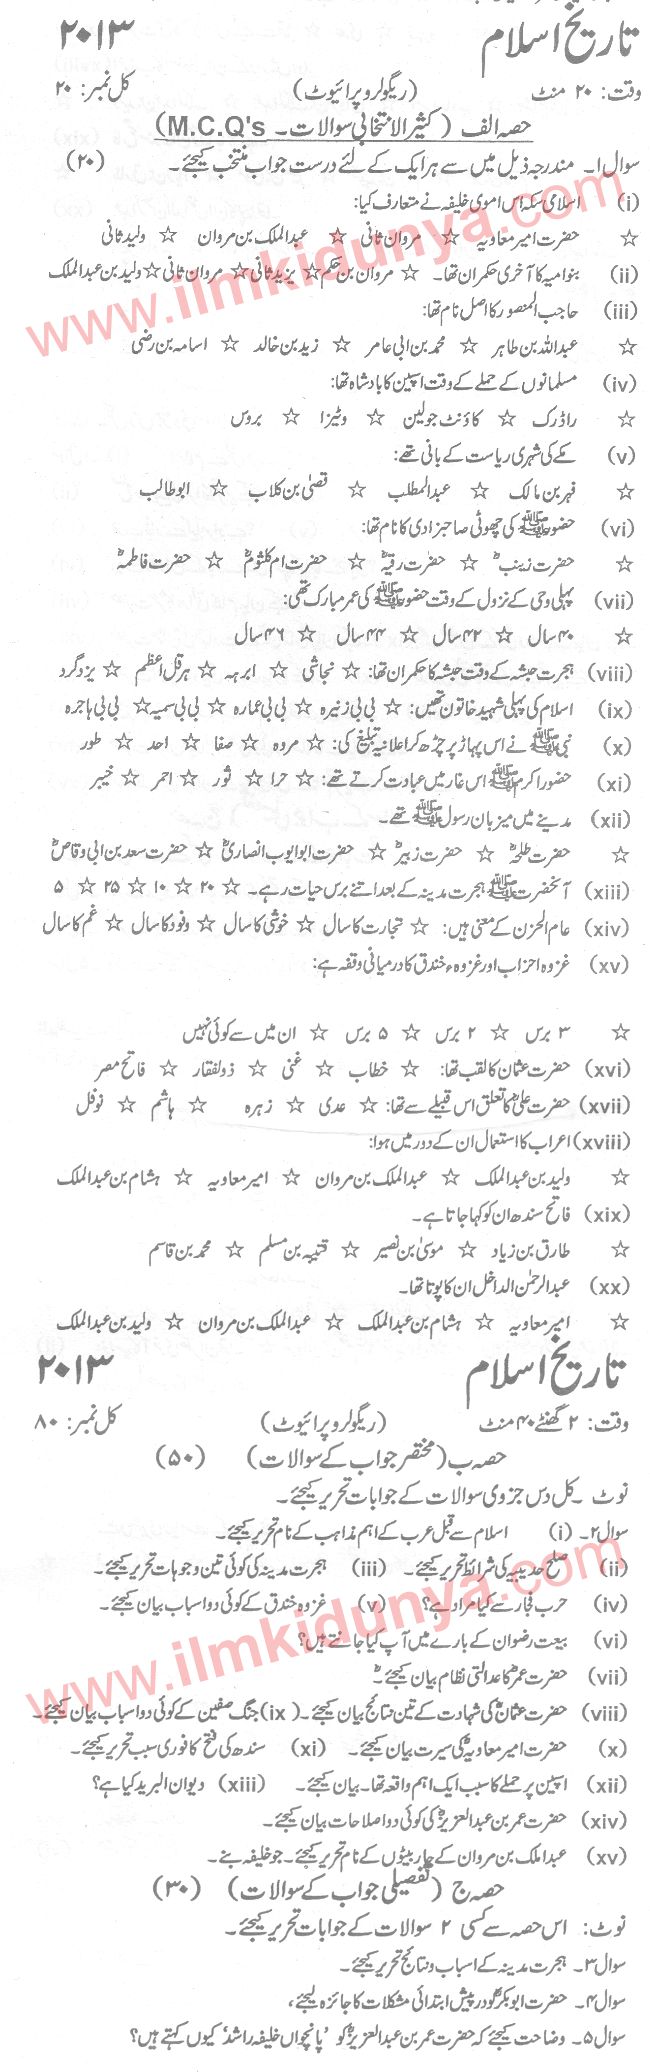 تاریخ اسلام ۲۰۱۳
وقت: ۲۰ منٹ (ریگولر و پرائیوٹ) کل نمبر: ۲۰
حصہ الف (کثیر الانتخابی سوالات۔ M.C.Q's)
سوال۱۔ مندرجہ ذیل میں سے ہر ایک کے لئے درست جواب منتخب کیجئے۔ (۲۰)
(i) اسلامی سکہ اس اموی خلیفہ نے متعارف کیا:
☆ حضرت امیر معاویہؓ ☆ مروان ثانی ☆ عبدالملک بن مروان ☆ ولید ثانی
(ii) بنوامیہ کا آخری حکمران تھا۔ ☆ مروان بن حکم ☆ یزید ثانی ☆ مروان ثانی ☆ ولید بن عبدالملک
(iii) حاجب المنصور کا اصل نام تھا:
☆ عبداللہ بن طاہر ☆ محمد بن ابی عامر ☆ زید بن خالد ☆ اسامہ بن رضی
(iv) مسلمانوں کے حملے کے وقت اسپین کا بادشاہ تھا:
☆ راڈرک ☆ کاؤنٹ جولین ☆ وٹیزا ☆ بروس
(v) مکے کی شہری ریاست کے بانی تھے:
☆ فہر بن مالک ☆ عبدالمطلب ☆ قصیٰ بن کلاب ☆ ابوطالب
(vi) حضور ﷺ کی چھوٹی صاحبزادی کا نام تھا:
☆ حضرت زینبؓ ☆ حضرت رقیہؓ ☆ حضرت ام کلثومؓ ☆ حضرت فاطمہؓ
(vii) پہلی وحی کے نزول کے وقت حضور ﷺ کی عمر مبارک تھی:
☆ ۴۰ سال ☆ ۴۲ سال ☆ ۴۴ سال ☆ ۴۶ سال
(viii) ہجرت حبشہ کے وقت حبشہ کا حکمران تھا: ☆ نجاشی ☆ ابرہہ ☆ ہرقل اعظم ☆ یزدگرد
(ix) اسلام کی پہلی شہید خاتون تھیں: ☆ بی بی زنیرہ ☆ بی بی عمارہ ☆ بی بی سمیہ ☆ بی بی ہاجرہ
(x) نبی ﷺ نے اس پہاڑ پر چڑھ کر اعلانیہ تبلیغ کی: ☆ مروہ ☆ صفا ☆ احد ☆ طور
(xi) حضور اکرم ﷺ اس غار میں عبادت کرتے تھے: ☆ حرا ☆ ثور ☆ احمر ☆ خیبر
(xii) مدینے میں میزبان رسول ﷺ تھے۔
☆ حضرت طلحہؓ ☆ حضرت زبیرؓ ☆ حضرت ابوایوب انصاریؓ ☆ حضرت سعد بن ابی وقاصؓ
(xiii) آنحضرت ﷺ ہجرت مدینہ کے بعد اتنے برس حیات رہے۔ ☆ ۲۰ ☆ ۱۰ ☆ ۲۵ ☆ ۵
(xiv) عام الحزن کے معنی ہیں: ☆ تجارت کا سال ☆ خوشی کا سال ☆ وفود کا سال ☆ غم کا سال
(xv) غزوہ احزاب اور غزوہء خندق کا درمیانی وقفہ ہے:
☆ ۳ برس ☆ ۲ برس ☆ ۵ برس ☆ ان میں سے کوئی نہیں
(xvi) حضرت عثمان کا لقب تھا: ☆ خطاب ☆ غنی ☆ ذولفقار ☆ فاتح مصر
(xvii) حضرت علیؓ کا تعلق اس قبیلے سے تھا: ☆ عدی ☆ زہرہ ☆ ہاشم ☆ نوفل
(xviii) اعراب کا استعمال ان کے دور میں ہوا:
☆ ولید بن عبدالملک ☆ عبدالملک بن مروان ☆ امیر معاویہ ☆ ہشام بن عبدالملک
(xix) فاتح سندھ ان کو کہا جاتا ہے۔
☆ طارق بن زیاد ☆ موسیٰ بن نصیر ☆ قتیبہ بن مسلم ☆ محمد بن قاسم
(xx) عبدالرحمٰن الداخل ان کا پوتا تھا۔
☆ امیر معاویہ ☆ ہشام بن عبدالملک ☆ عبدالملک بن مروان ☆ ولید بن عبدالملک
تاریخ اسلام ۲۰۱۳
وقت: ۲ گھنٹے ۴۰ منٹ (ریگولر و پرائیوٹ) کل نمبر: ۸۰
حصہ ب (مختصر جواب کے سوالات) (۵۰)
نوٹ۔ کل دس جزوی سوالات کے جوابات تحریر کیجئے۔
سوال۲۔ (i) اسلام سے قبل عرب کے اہم مذاہب کے نام تحریر کیجئے۔
(ii) صلح حدیبیہ کی شرائط تحریر کیجئے۔ (iii) ہجرت مدینہ کی کوئی تین وجوہات تحریر کیجئے۔
(iv) حرب فجار سے کیا مراد ہے؟ (v) غزوہ خندق کے کوئی دو اسباب بیان کیجئے۔
(vi) بیعت رضوان کے بارے میں آپ کیا جانتے ہیں؟
(vii) حضرت عمرؓ کا عدالتی نظام بیان کیجئے۔
(viii) حضرت عثمانؓ کی شہادت کے تین نتائج بیان کیجئے۔ (ix) جنگ صفین کے کوئی دو اسباب بیان کیجئے۔
(x) حضرت امیر معاویہؓ کی سیرت بیان کیجئے۔ (xi) سندھ کی فتح کا فوری سبب تحریر کیجئے۔
(xii) اسپین پر حملے کا سبب ایک اہم واقعہ تھا۔ بیان کیجئے۔ (xiii) دیوان البرید کیا ہے؟
(xiv) حضرت عمر بن عبدالعزیزؒ کی کوئی دو اصلاحات بیان کیجئے۔
(xv) عبدالملک بن مروان کے چار بیٹوں کے نام تحریر کیجئے۔ جو خلیفہ بنے۔
حصہ ج (تفصیلی جواب کے سوالات) (۳۰)
نوٹ: اس حصہ سے کسی ۲ سوالات کے جوابات تحریر کیجئے۔
سوال۳۔ ہجرت مدینہ کے اسباب و نتائج تحریر کیجئے۔
سوال۴۔ حضرت ابوبکرؓ کو درپیش ابتدائی مشکلات کا جائزہ لیجئے،
سوال۵۔ وضاحت کیجئے کہ حضرت عمر بن عبدالعزیزؒ کو 'پانچواں خلیفہ راشد' کیوں کہتے ہیں؟
www.ilmkidunya.com
www.ilmkidunya.com